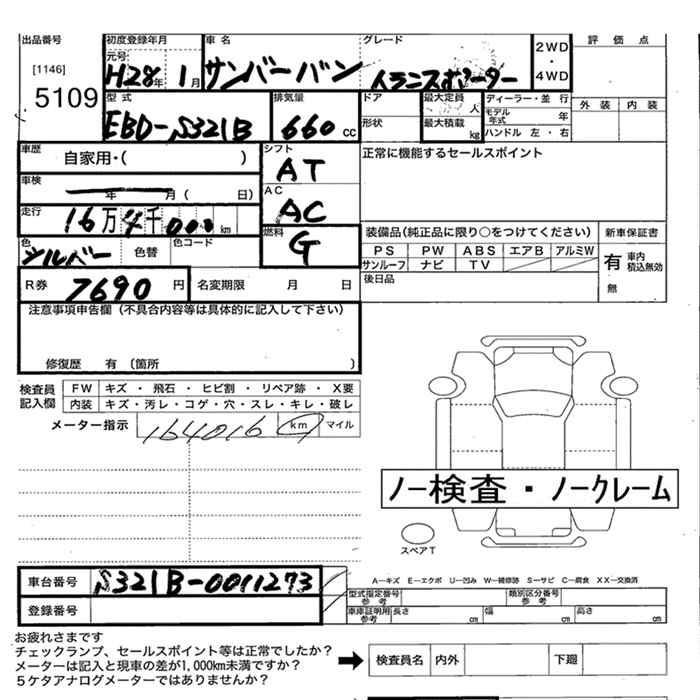 出品番号 初度登録年月 車名 グレード 2WD・4WD 評価点
[1146] 元号 H28年 1月 サンバーバン トランスポーター
5109 型式 排気量 ドア 最大定員 人 ディーラー・並行 外装 内装
EBD-S321B 660cc 形状 最大積載 kg モデル年式 年
ハンドル 左・右
車歴 自家用・( ) シフト AT 正常に機能するセールスポイント
車検 年 月( 日) AC AC
走行 16万4千000km 燃料 G 装備品(純正品に限り○をつけてください) 新車保証書
色 シルバー 色替 色コード PS PW ABS エアB アルミW 有 車内積込無効
サンルーフ ナビ TV 無
R券 7690円 名変期限 月 日 後日品
注意事項申告欄(不具合内容等は具体的に記入して下さい)
修復歴 有(箇所 )
検査員記入欄 FW キズ・飛石・ヒビ割・リペア跡・X要
内装 キズ・汚レ・コゲ・穴・スレ・キレ・破レ
メーター指示 164016 km マイル
ノー検査・ノークレーム
スペアT
車台番号 S321B-0011273 A―キズ E―エクボ U―凹み W―補修跡 S―サビ C―腐食 XX―交換済
登録番号 型式指定番号 参考 類別区分番号 参考
車庫証明用 参考 長さ cm 幅 cm 高さ cm
お疲れさまです
チェックランプ、セールスポイント等は正常でしたか?
メーターは記入と現車の差が1,000km未満ですか? 検査員名 内外 下廻
5ケタアナログメーターではありませんか?